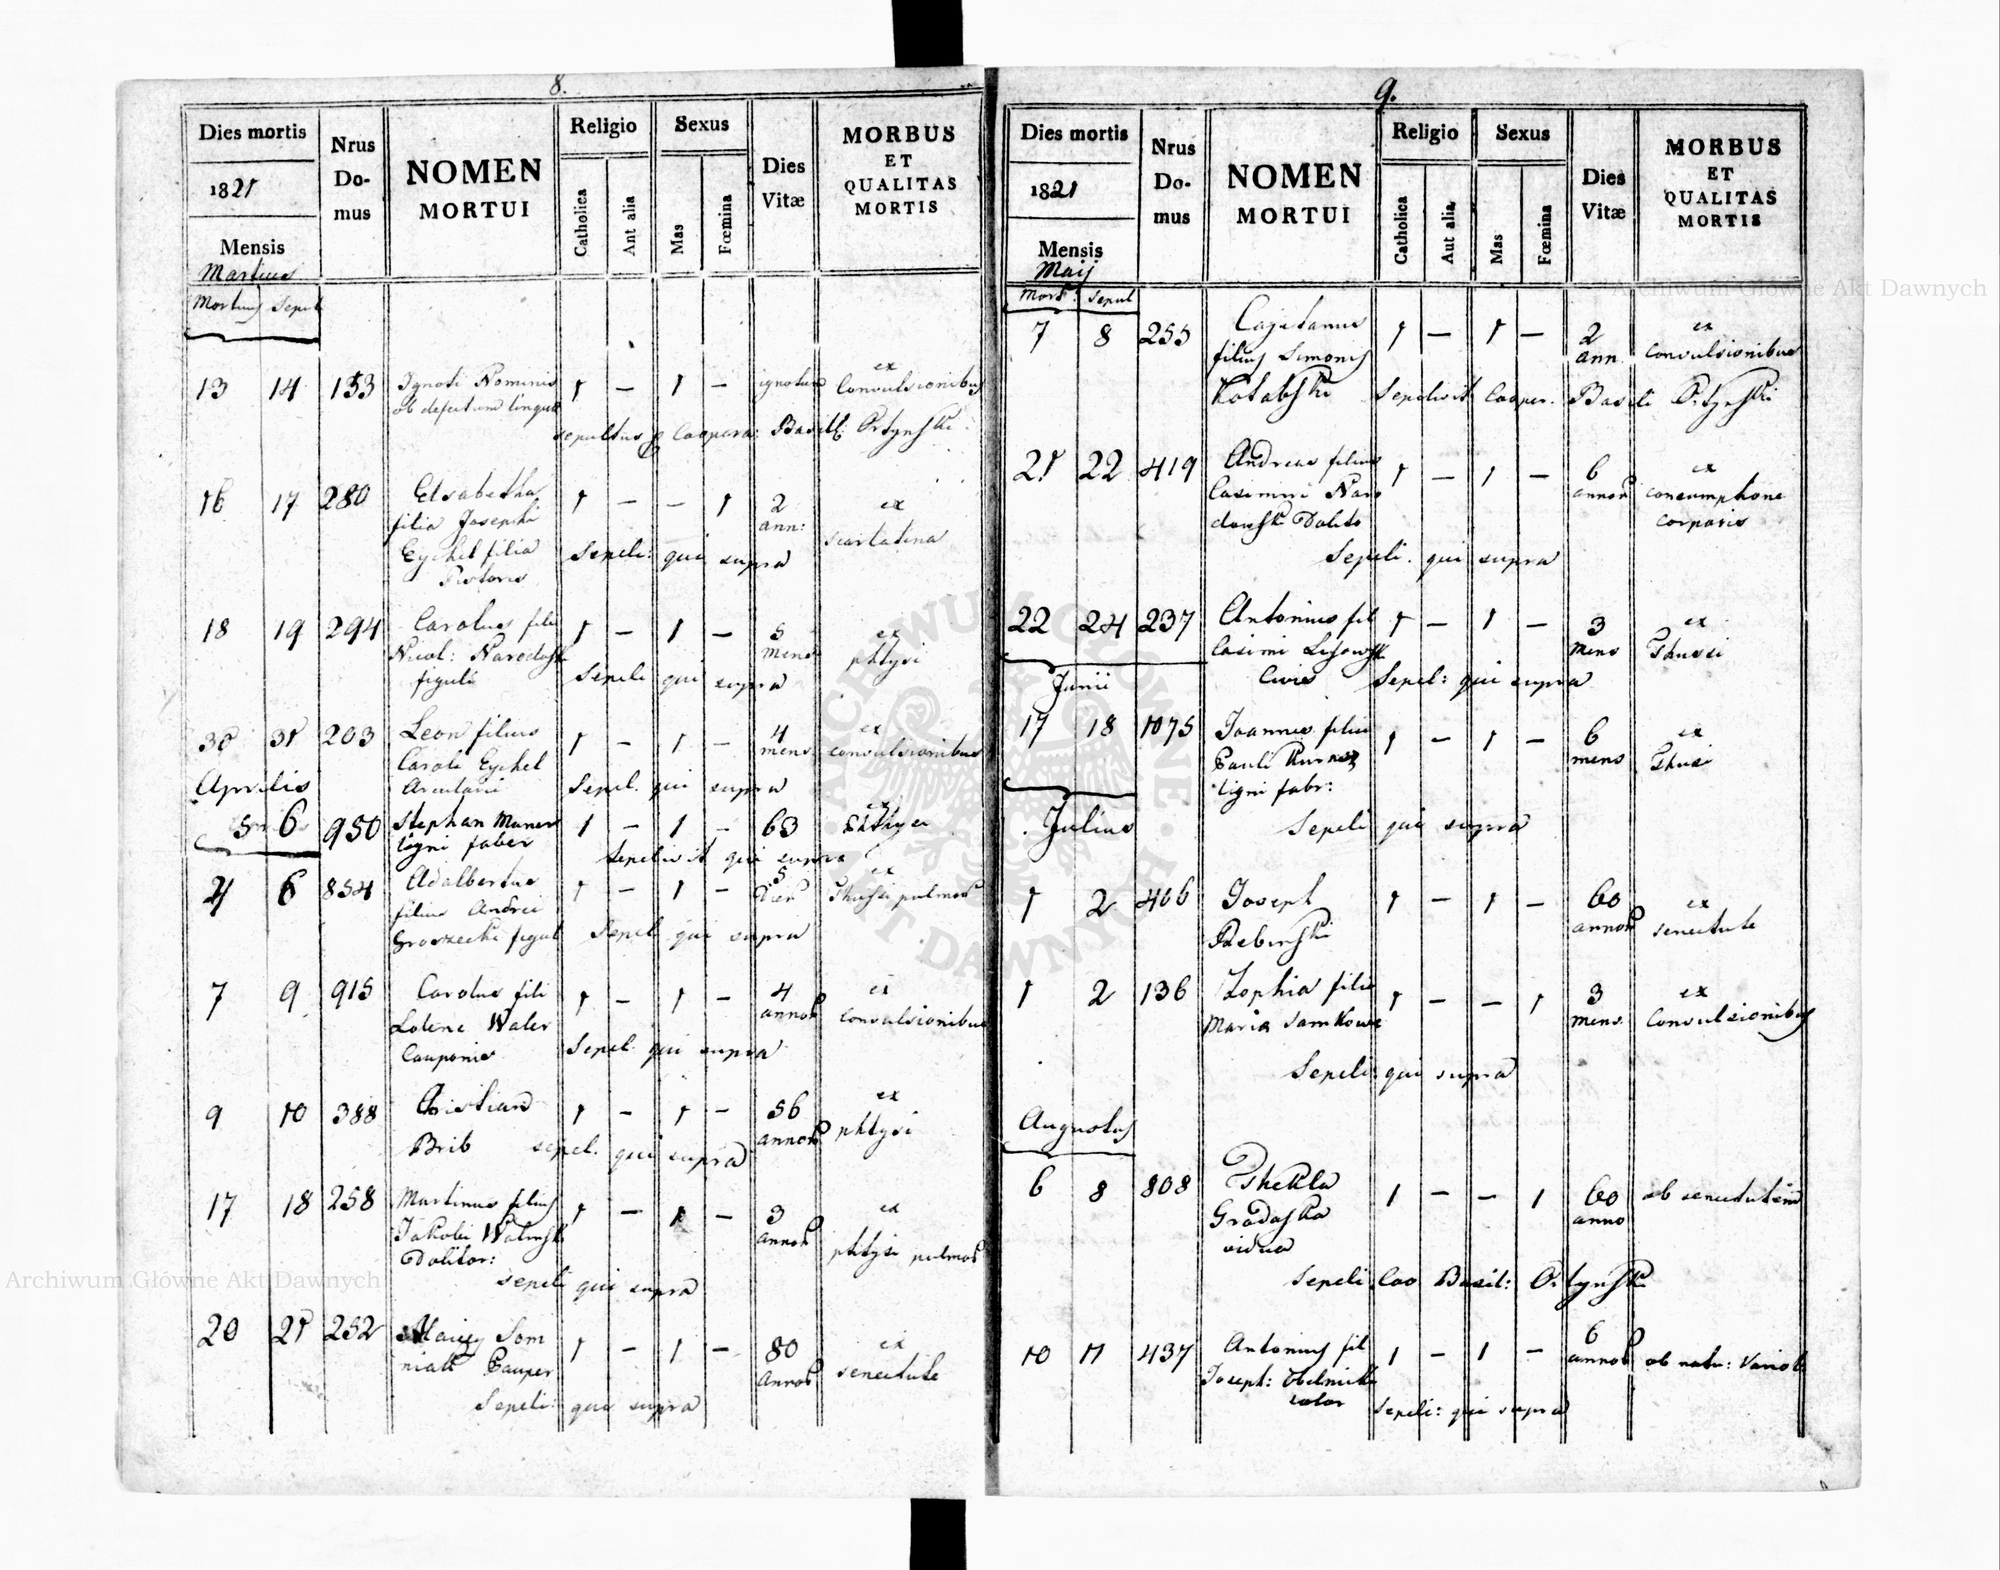 8.
Dies mortis
Nrus Domus
NOMEN MORTUI
Religio
Sexus
Dies Vitæ
MORBUS ET QUALITAS MORTIS
1821
Catholica
Aut alia
Mas
Fœmina
Mensis
Martius
Mortuus Sepul
13 14 153 Ignoti Nominis 1 – 1 – ignotum ex Convulsionibus
ob defectum linguæ
sepultus p Coopera: Basil: Ortynski
16 17 280 Elsabetha 1 – – 1 2 ann: ex scarlatina
filia Josephi
Eychel filia
Pistoris
Sepeli: qui supra
18 19 294 Carolus fili 1 – 1 – 5 mens ex phtysi
Nicol: Narodosk
figuli
Sepeli qui supra
30 31 203 Leon filius 1 – 1 – 4 mens. ex convulsionibus
Caroli Eychel
Arculari
Sepel. qui supra
Aprilis
5 6 950 Stephan Maner 1 – 1 – 63 ex
ligni faber
Sepelivit qui supra
4 6 854 Adalbertus 1 – 1 – 5 ex
filius Andrei
Groszecki figul
Sepel qui supra
7 9 915 Carolus fili 1 – 1 – 4 annor ex convulsionibus
Waler
Cauponis
Sepel. qui supra
9 10 388 Cristian 1 – 1 – 56 annor ex phtysi
Brib sepel. qui supra
17 18 258 Martinus filius 1 – 1 – 3 annor ex phtysi pulmon
Jakobi
Dolitor:
sepeli qui supra
20 21 252 Som 1 – 1 – 80 Annor ex senectute
niak Pauper
Sepeli: qui supra
9.
Dies mortis
Nrus Domus
NOMEN MORTUI
Religio
Sexus
Dies Vitæ
MORBUS ET QUALITAS MORTIS
1821
Catholica
Aut alia
Mas
Fœmina
Mensis
Maij
Mort: Sepul
7 8 255 Cajetanus 1 – 1 – 2 ann. ex convulsionibus
filius Simonis
Sepelivit Cooper. Basili Ortynski
21 22 419 Andreas filius 1 – 1 – 6 annor ex
Casimiri Naro
Dolito
corporis
Sepeli. qui supra
22 24 237 Antonius fil 1 – 1 – 3 mens ex
Casimi Lisowsk
Civis Sepel: qui supra
Junii
17 18 1075 Joannes filius 1 – 1 – 6 mens ex
Pauli
ligni fabr:
Sepeli qui supra
Julius
1 2 466 Joseph 1 – 1 – 60 annor ex senectute
Rebinski
1 2 136 Zophia filia 1 – – 1 3 mens. ex Convulsionibus
Maria
Sepeli: qui supra
Augustus
6 8 808 Thekla 1 – – 1 60 anno ob senectutem
Gradaska
vidua
Sepeli Coo Basil: Ortynski
10 11 437 Antonius fil 1 – 1 – 6 annor ob natu: Variol
Joseph:
Sepeli: qui supra
Archiwum Główne Akt Dawnych
Archiwum Główne Akt Dawnych
ARCHIWUM GŁÓWNE · AKT · DAWNYCH ·